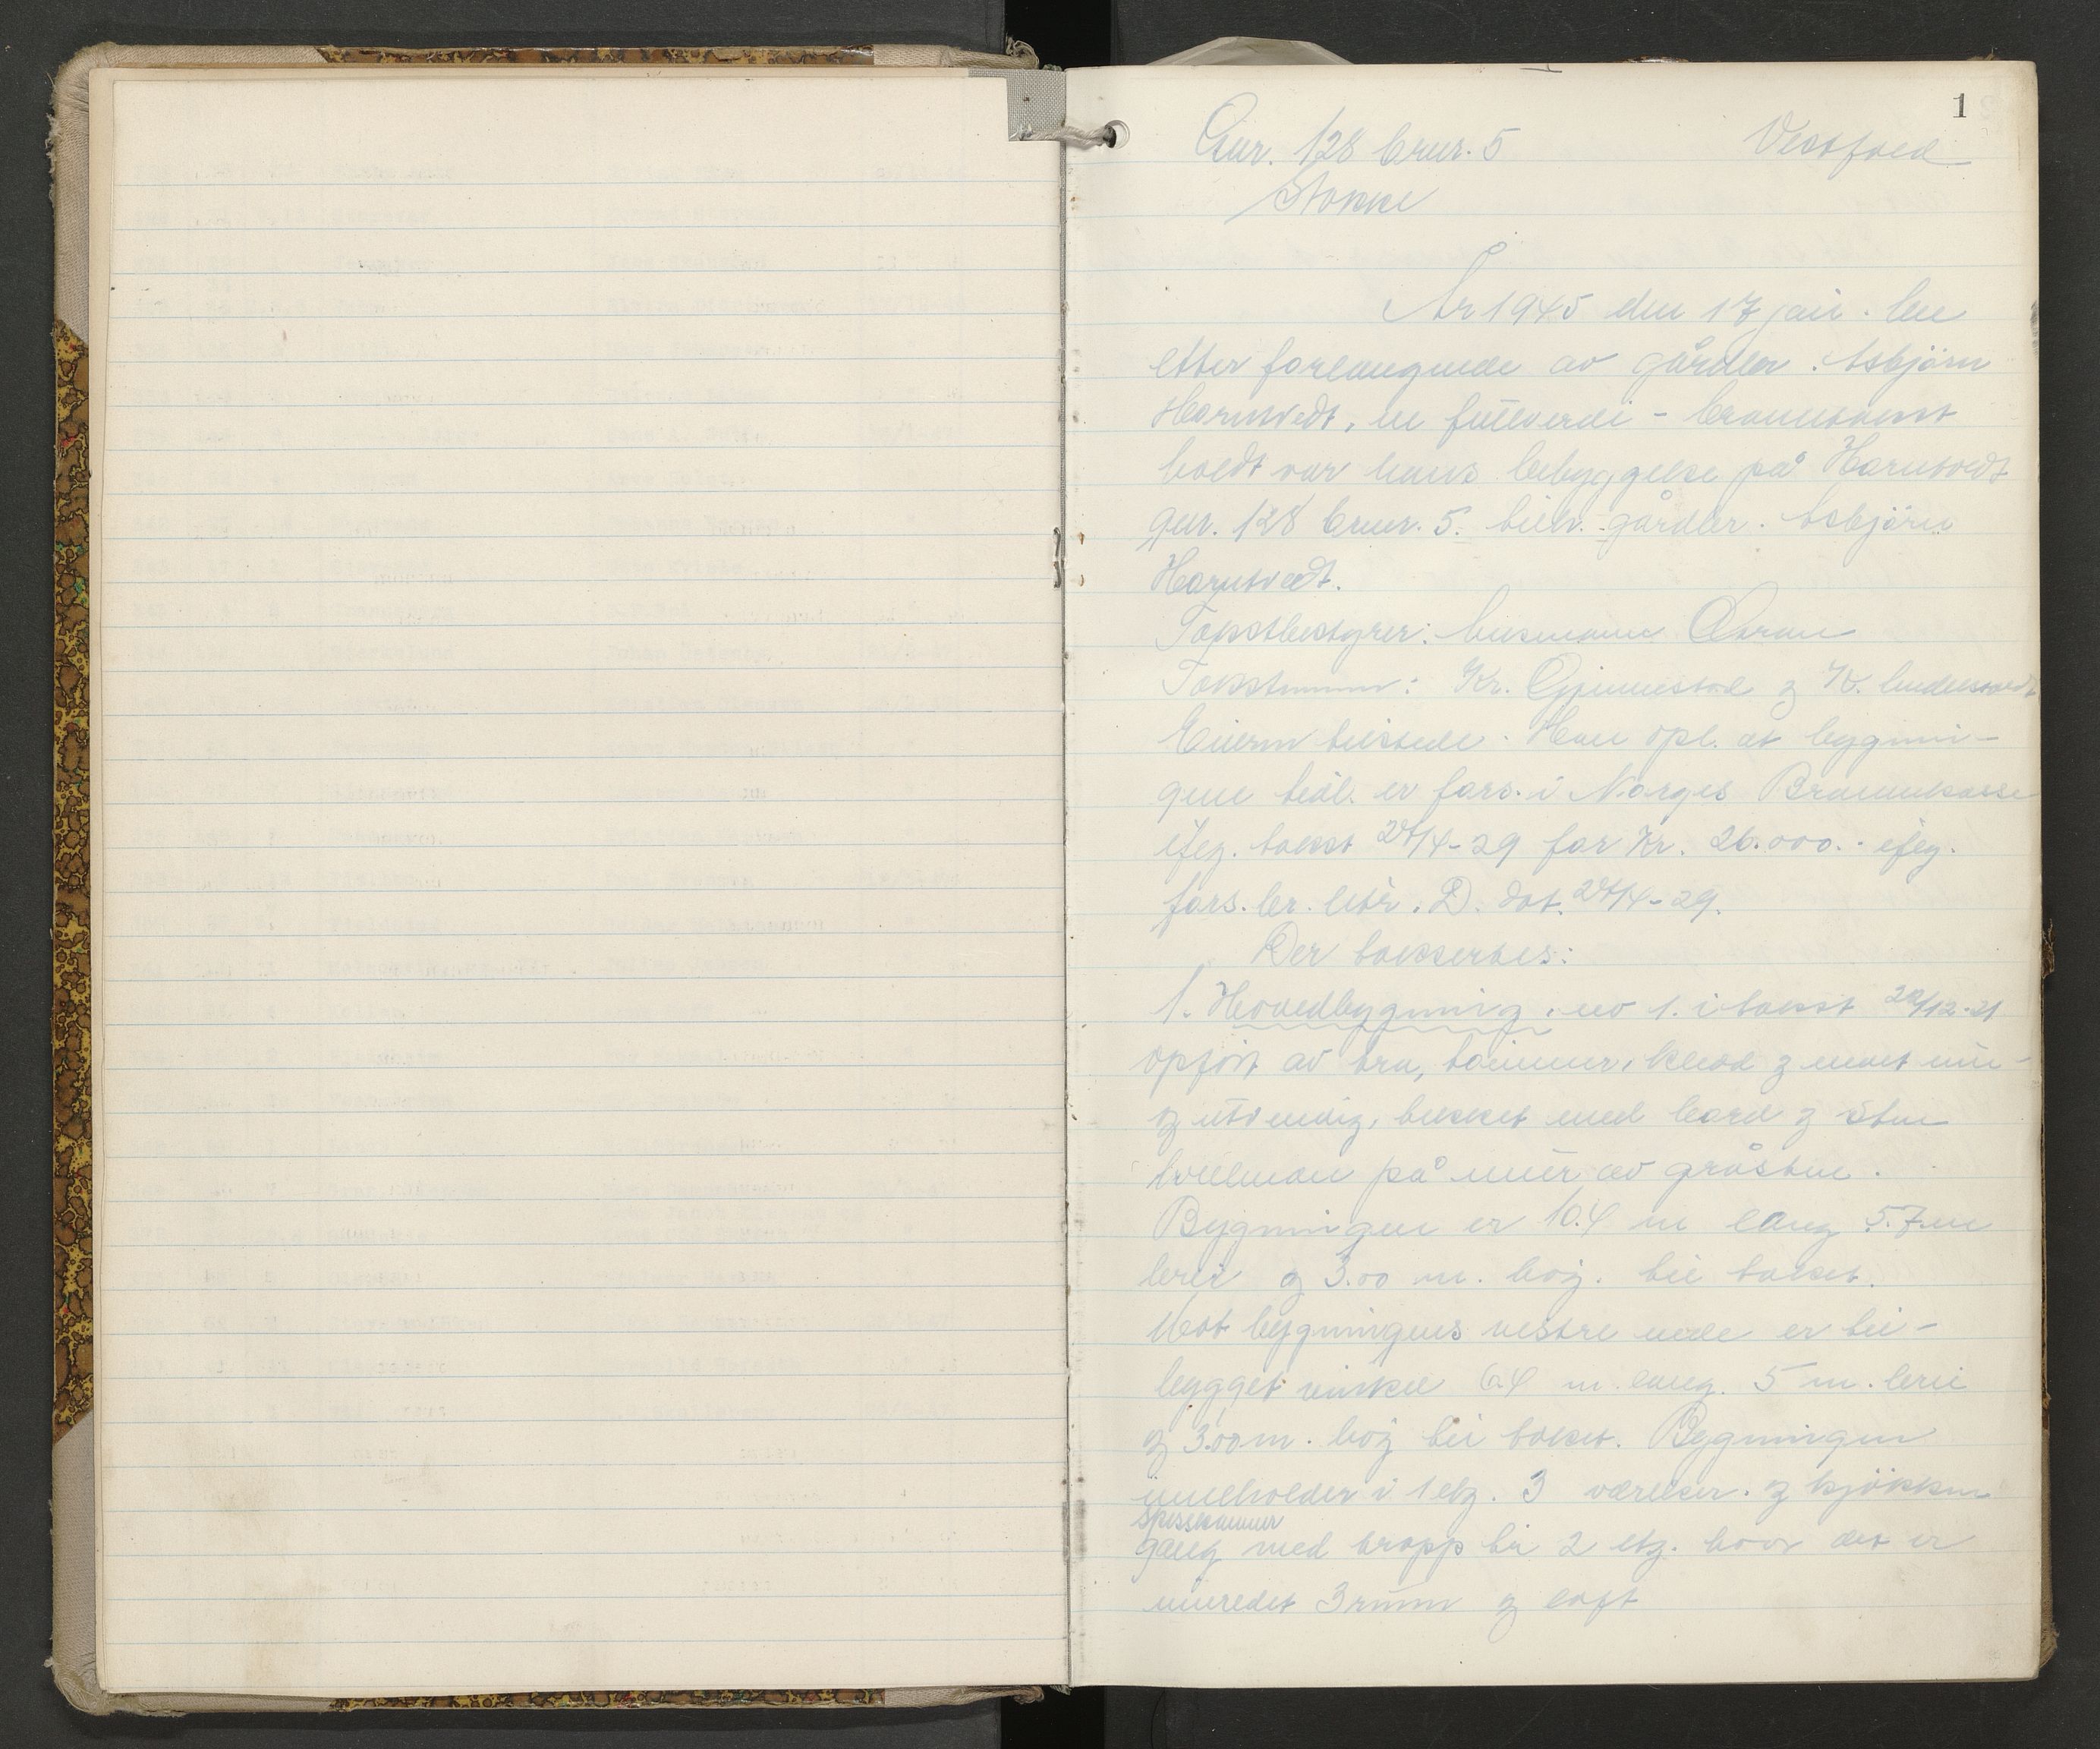 1
Gnr. 128 bnr. 5 Vestfold
Stokke
År 1945 den 17 jan. ble
etter forlangende av gårdbr. Asbjørn
Harntvedt, en fullverdi - branntakst
holdt over hans bebyggelse på Harntvedt
gnr. 128 bnr. 5. tilh. gårdbr. Asbjørn
Harntvedt.
Takstbestyrer: lensmann
Takstmenn: Kr. Gjennestad og K.
Eieren tilstede. Han opl. at bygnin-
gene tidl. er fors. i Norges Brannkasse
ifølg. takst 24/4-29 for Kr. 26.000.- iflg.
fors. br. litr. D. dat. 24/4-29.
Der takseres:
1. Hovedbygning, no 1. i takst 29/12-21
opført av tre, tømmer, kledd og malt inn-
og utvendig, tekket med bord og sten
hvilende på mur av gråsten.
Bygningen er 10.4 m lang 5.7 m
bred og 3.00 m. høy til taket.
Mot bygningens vestre ende er til-
bygget vinkel 6.4 m. lang. 5 m. bred
og 3.00 m. høy til taket. Bygningen
inneholder i 1 etg. 3 værelser. og kjøkken
spisskammer
gang med trapp til 2 etg. hvor det er
innredet 3 rum og loft